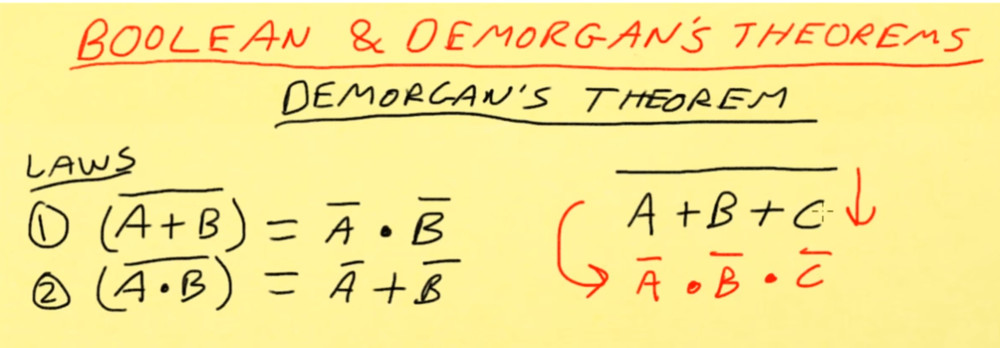 BOOLEAN & DEMORGAN'S THEOREMS
DEMORGAN'S THEOREM
LAWS
① (A̅+̅B̅) = A̅ • B̅
② (A̅•̅B̅) = A̅ + B̅
A̅ ̅+̅ ̅B̅ ̅+̅ ̅C̅
A̅ • B̅ • C̅